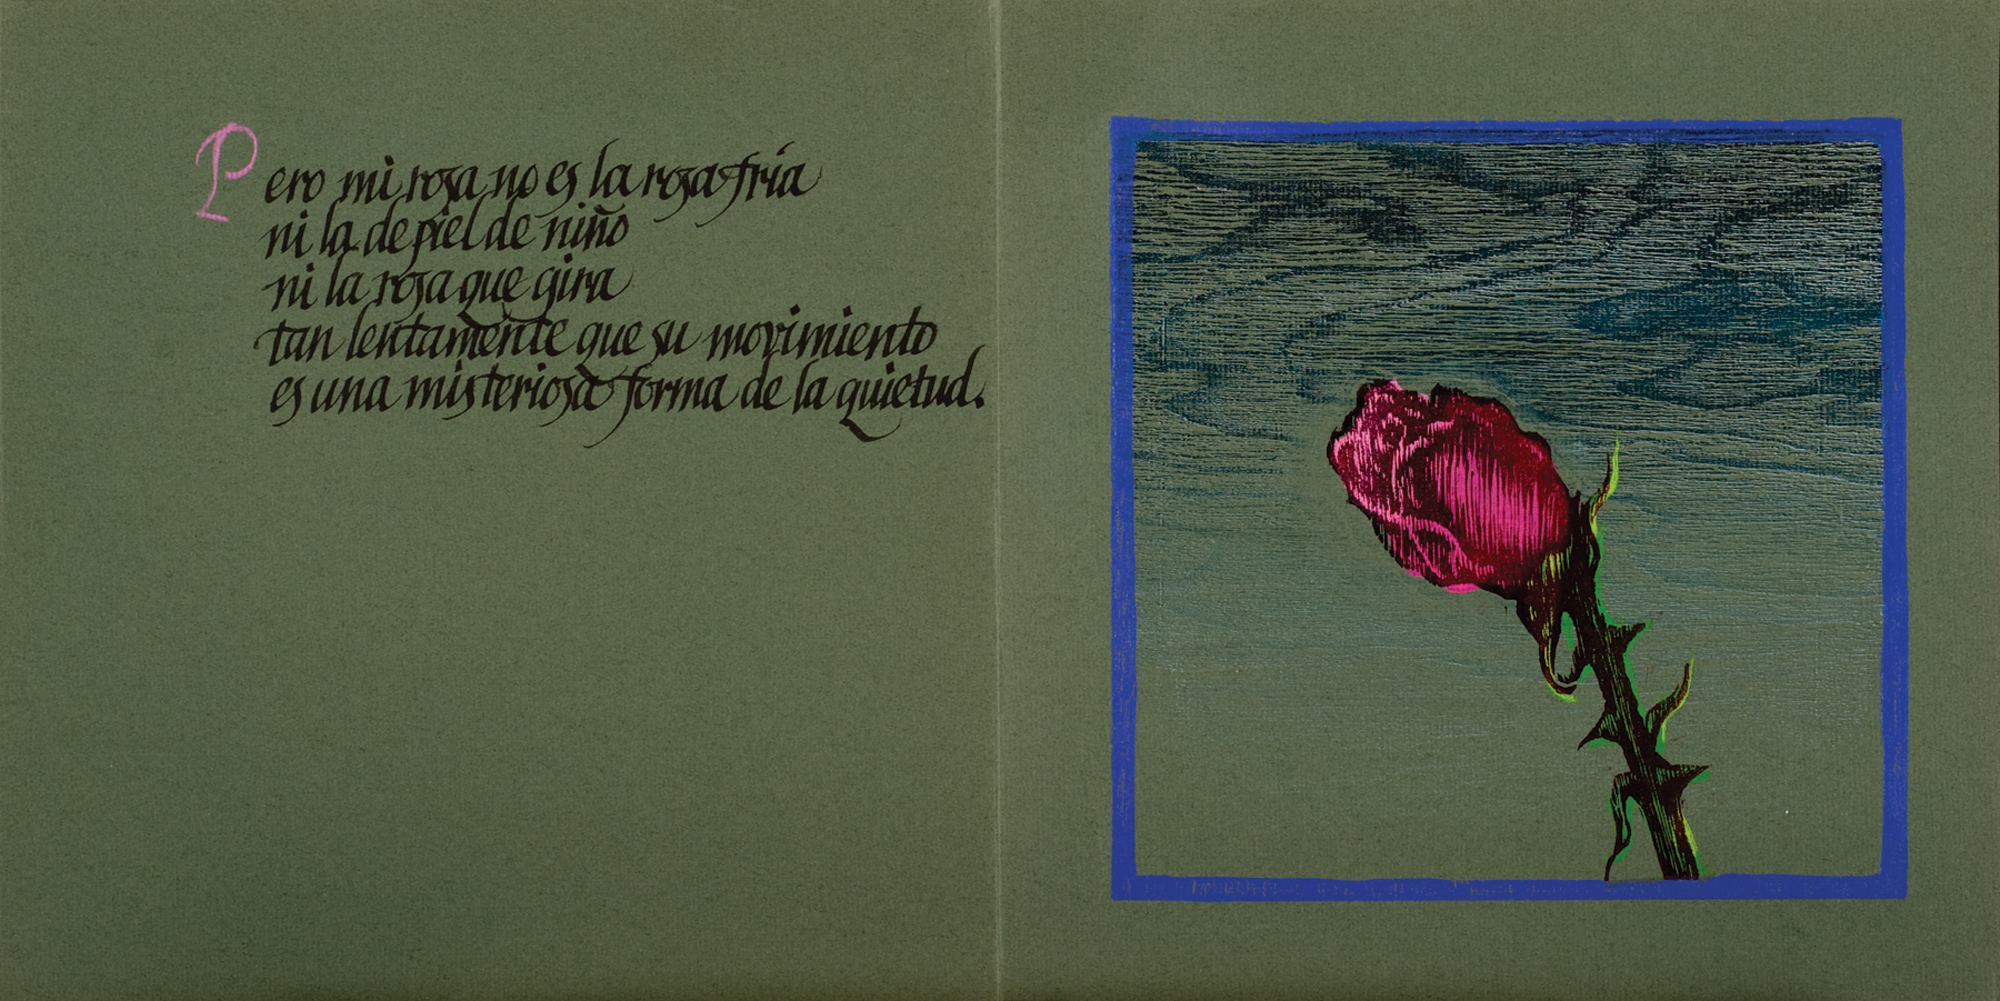 Pero mi rosa no es la rosa fría
ni la de piel de niño
ni la rosa que gira
tan lentamente que su movimiento
es una misteriosa forma de la quietud.